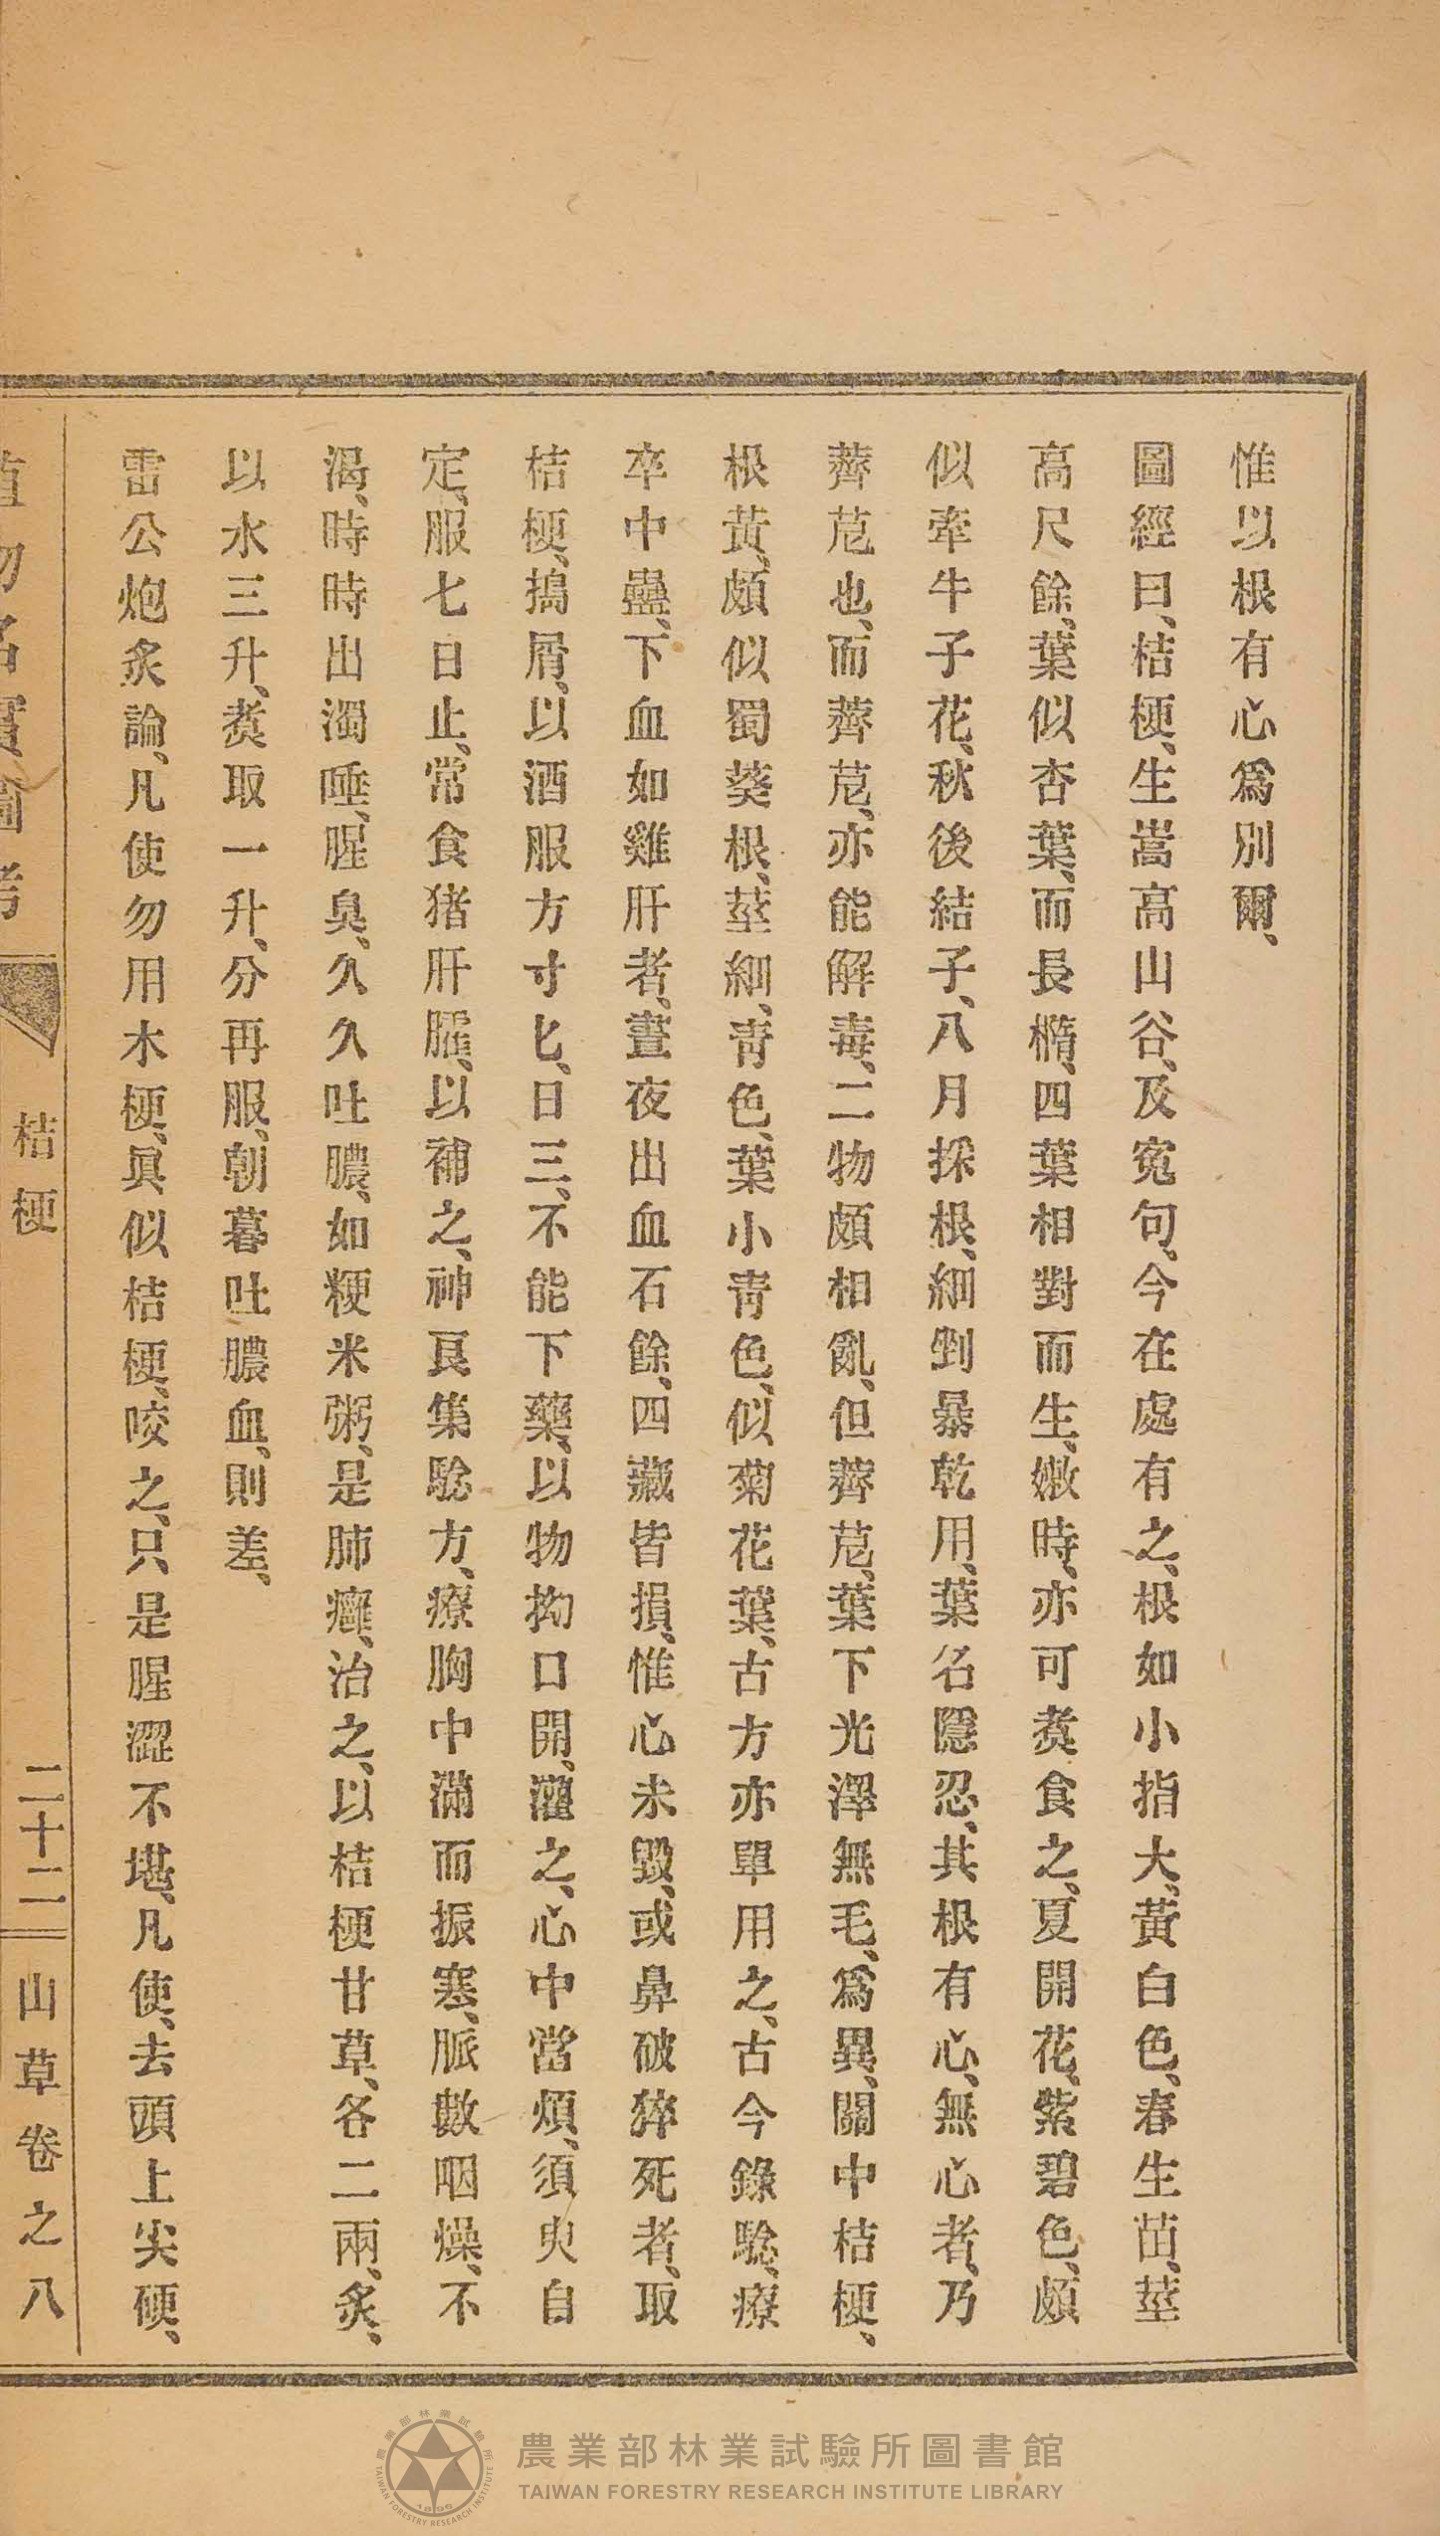 惟以根有心爲別爾、
圖經曰、桔梗、生嵩高山谷、及寃句、今在處有之、根如小指大、黃白色、春生苗、莖
高尺餘、葉似杏葉、而長橢、四葉相對而生、嫩時、亦可煑食之、夏開花、紫碧色、頗
似牽牛子花、秋後結子、八月採根、細剉暴乾用、葉名隱忍、其根有心、無心者、乃
薺苨也、而薺苨、亦能解毒、二物頗相亂、但薺苨、葉下光澤無毛、爲異、關中桔梗、
根黃、頗似蜀葵根、莖細、靑色、葉小靑色、似菊花葉、古方亦單用之、古今錄驗、療
卒中蠱、下血如雞肝者、晝夜出血石餘、四藏皆損、惟心未毀、或鼻破猝死者、取
桔梗、搗屑、以酒服方寸匕、日三、不能下藥、以物拗口開、灌之、心中當煩、須臾自
定、服七日止、常食猪肝臛、以補之、神良集驗方、療胸中滿而振寒、脈數咽燥、不
渴、時時出濁唾、腥臭、久久吐膿、如粳米粥、是肺癰、治之、以桔梗甘草、各二兩、炙、
以水三升、煑取一升、分再服、朝暮吐膿血、則差、
雷公炮炙論、凡使勿用木梗、眞似桔梗、咬之、只是腥澀不堪、凡使、去頭上尖硬、
植物名實圖考
桔梗
二十二
山草卷之八
農業部林業試驗所圖書館
TAIWAN FORESTRY RESEARCH INSTITUTE LIBRARY
農業部林業試驗所
TAIWAN FORESTRY RESEARCH INSTITUTE
1895